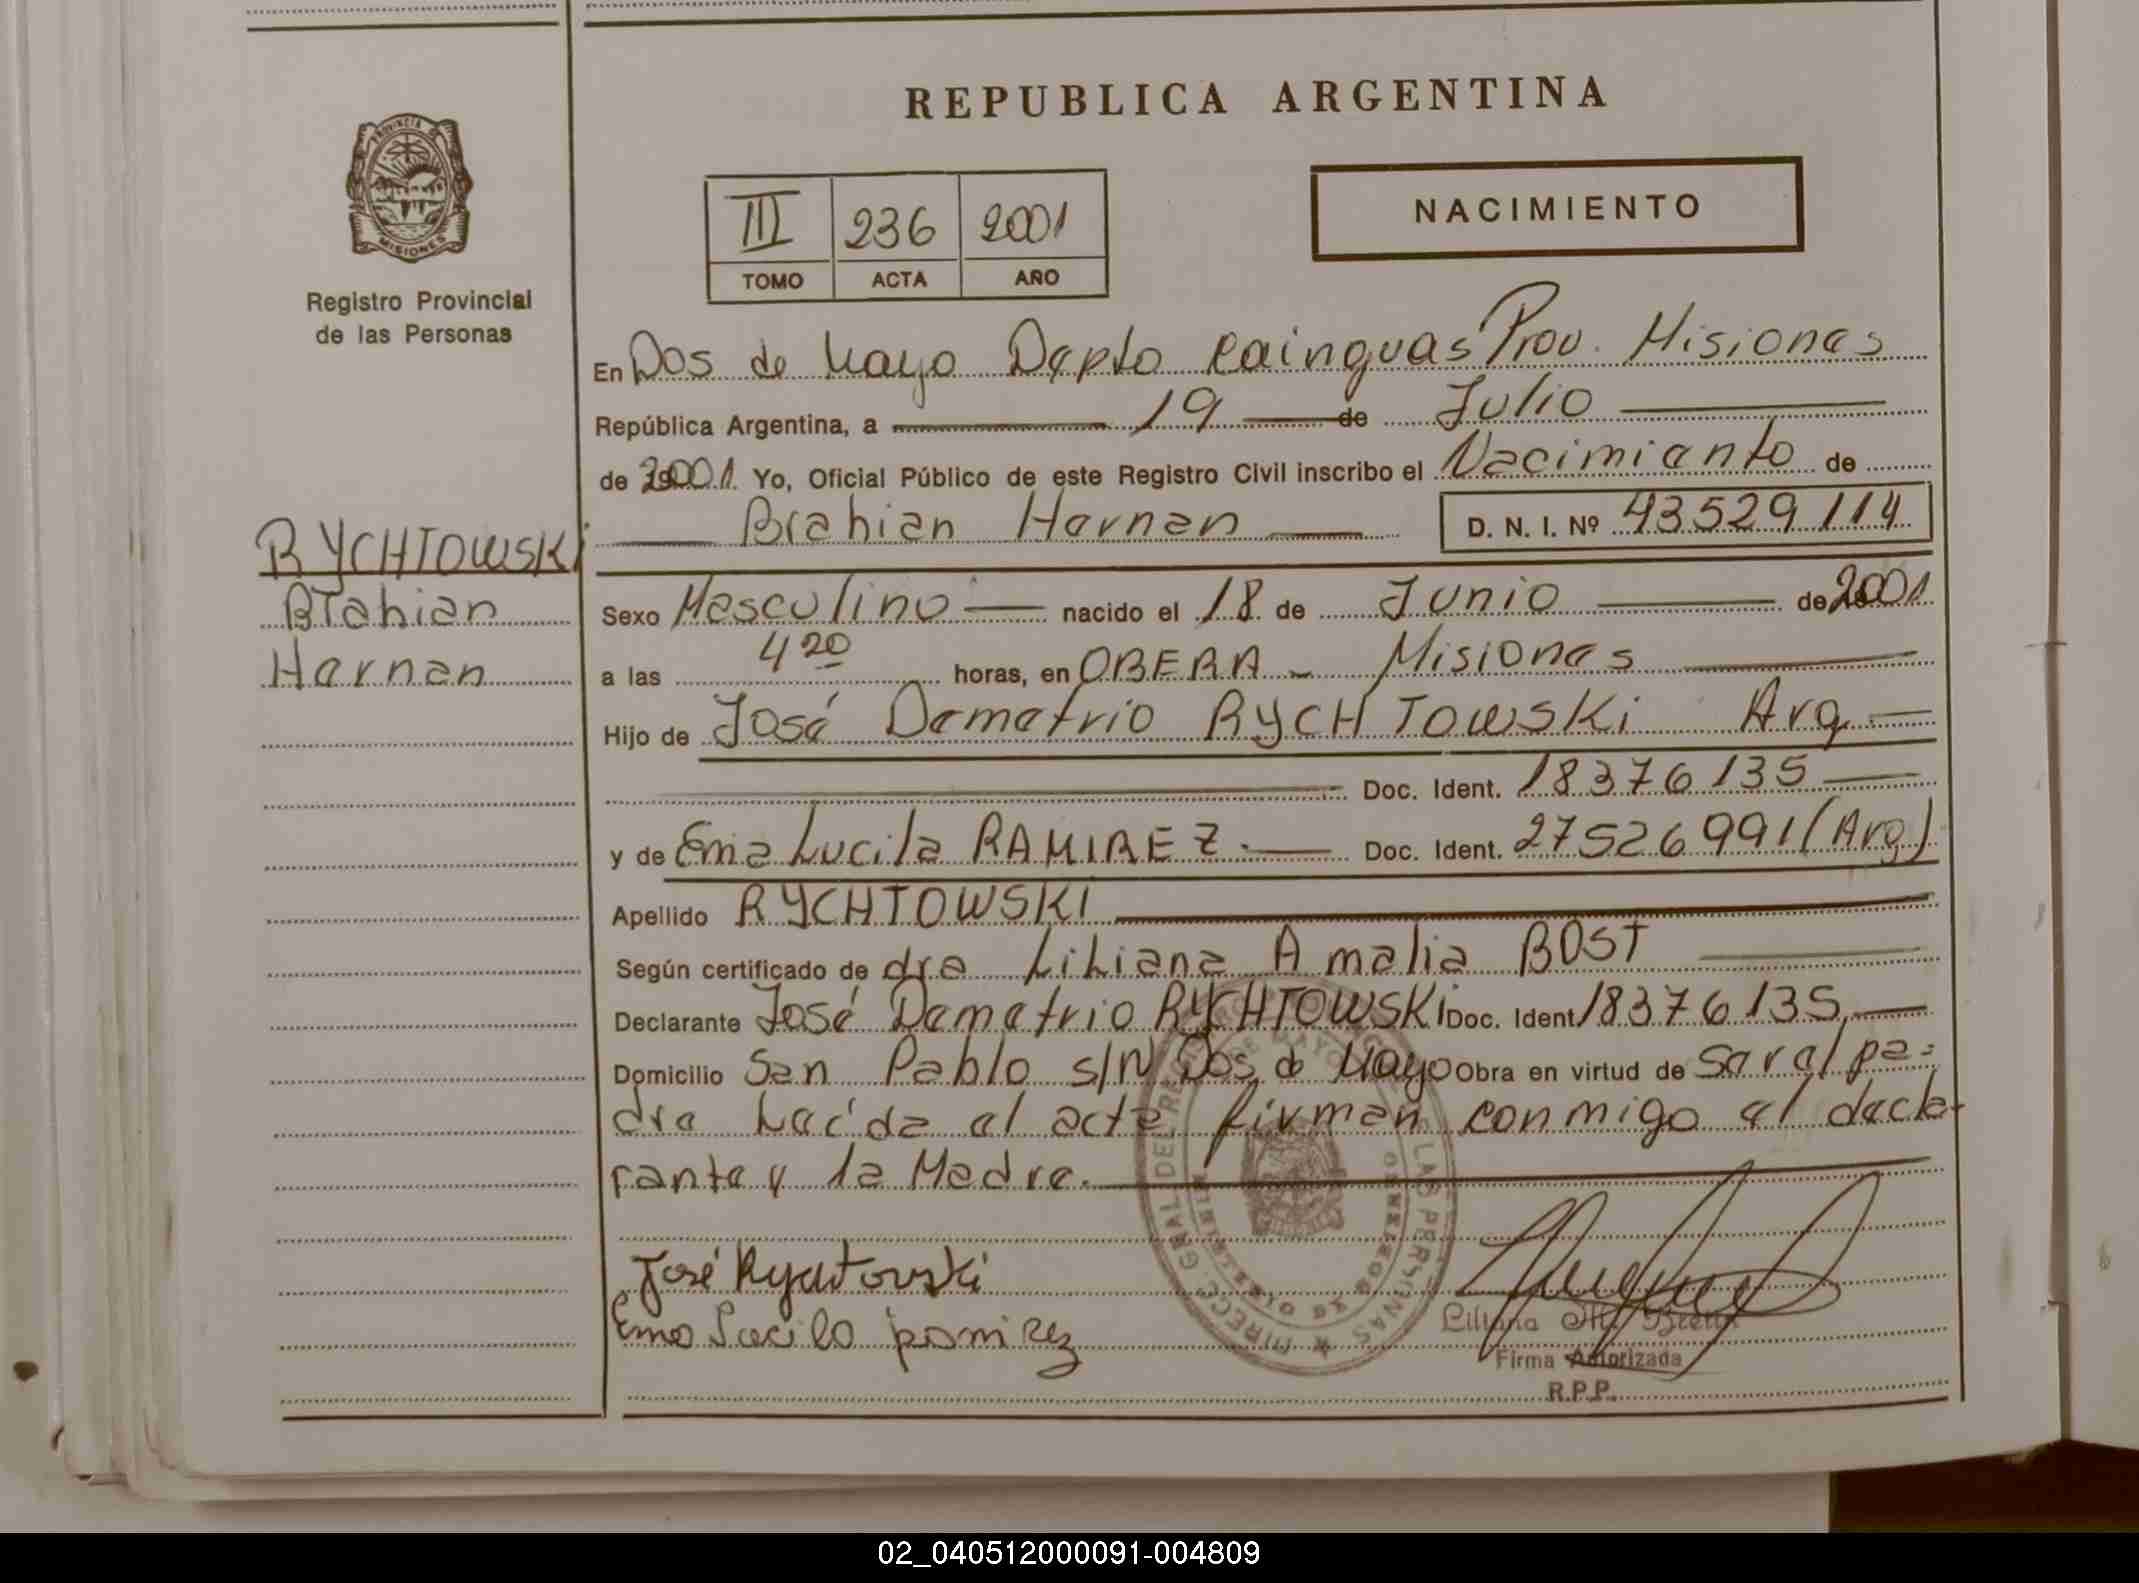 REPUBLICA ARGENTINA
PROVINCIA DE
MISIONES
Registro Provincial
de las Personas
III 236 2001
TOMO ACTA AÑO
NACIMIENTO
En Dos de Mayo Depto Cainguas Prov. Misiones
República Argentina, a 19 de Julio
de 2001 Yo, Oficial Público de este Registro Civil inscribo el Nacimiento de
Brahian Hernan D. N. I. Nº 43529114
RYCHTOWSKI
Brahian
Hernan
Sexo Masculino nacido el 18 de Junio de 2001
a las 4 20 horas, en OBERA - Misiones
Hijo de José Demetrio RYCHTOWSKi Arg
Doc. Ident. 18376135
y de Ema Lucila RAMIREZ. Doc. Ident. 27526991 (Arg)
Apellido RYCHTOWSKI
Según certificado de dra Liliana Amalia BOST
Declarante José Demetrio RYCHTOWSKI Doc. Ident 18376135
Domicilio San Pablo s/N Dos de Mayo Obra en virtud de ser el pa=
dre Leída el acta firman conmigo el decla-
rante y la Madre.
José Rychtowski
Ema Lucila ramirez
Liliana M.
Firma Autorizada
R.P.P.
02_040512000091-004809